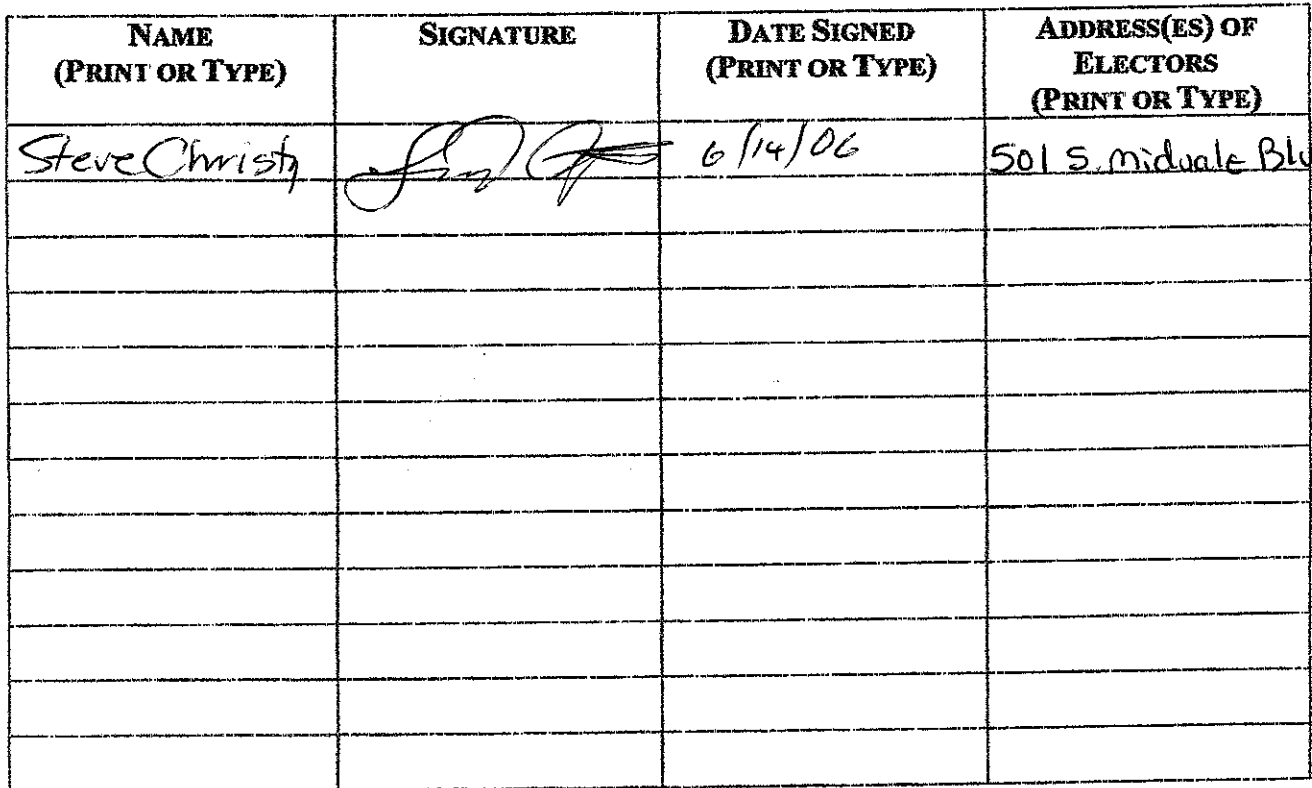 NAME
(PRINT OR TYPE)
SIGNATURE
DATE SIGNED
(PRINT OR TYPE)
ADDRESS(ES) OF
ELECTORS
(PRINT OR TYPE)
Steve Christy 6/14/06 501 S. Midvale Blv